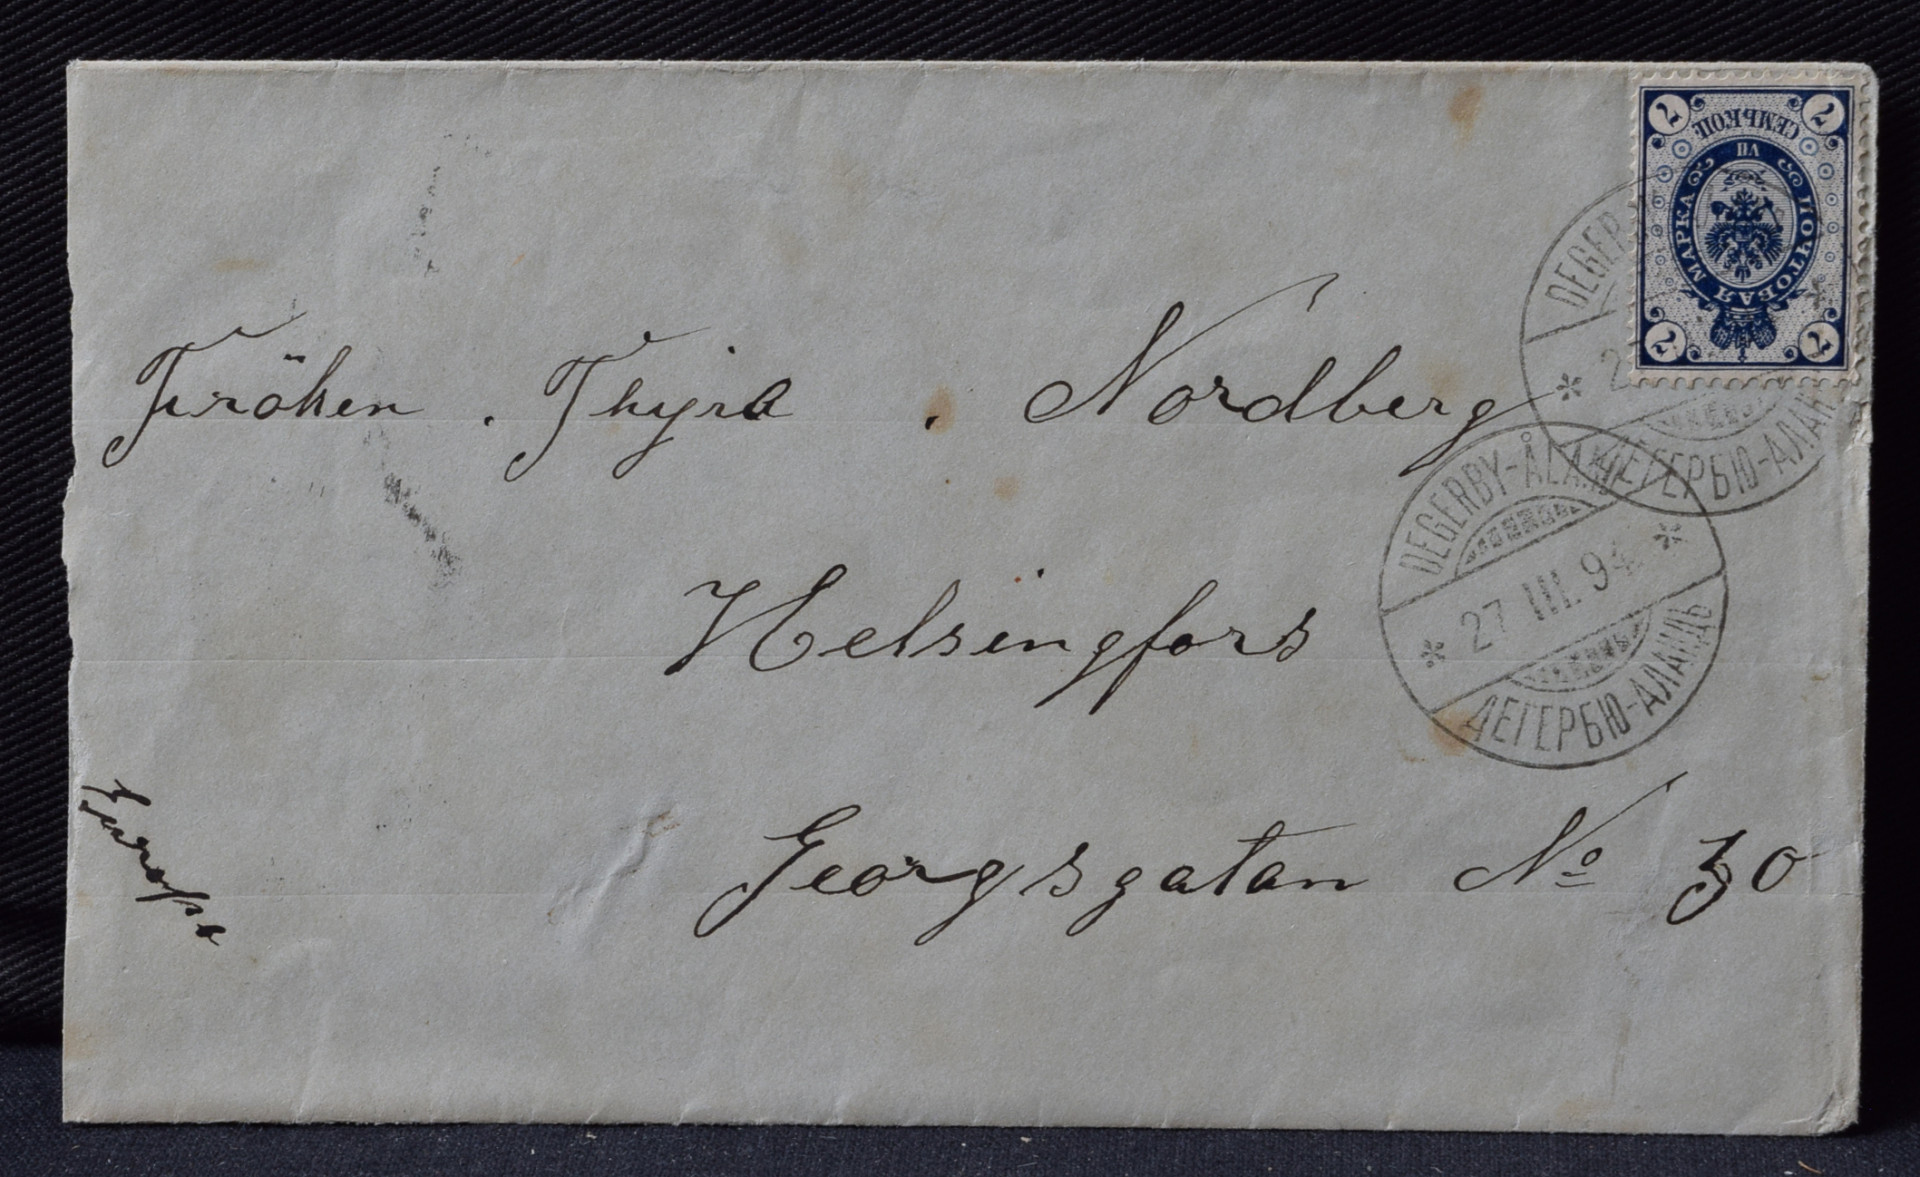 7 СЕМЬ КОП. 7
VII
ПОЧТОВАЯ МАРКА
7 7
DEGERBY
ДЕГЕРБЮ-АЛАН
Fröken . Thyra . Nordberg
DEGERBY-ÅLAND
27 III. 94
ДЕГЕРБЮ-АЛАНДЪ
Helsingfors
Georgsgatan No 30
Europa